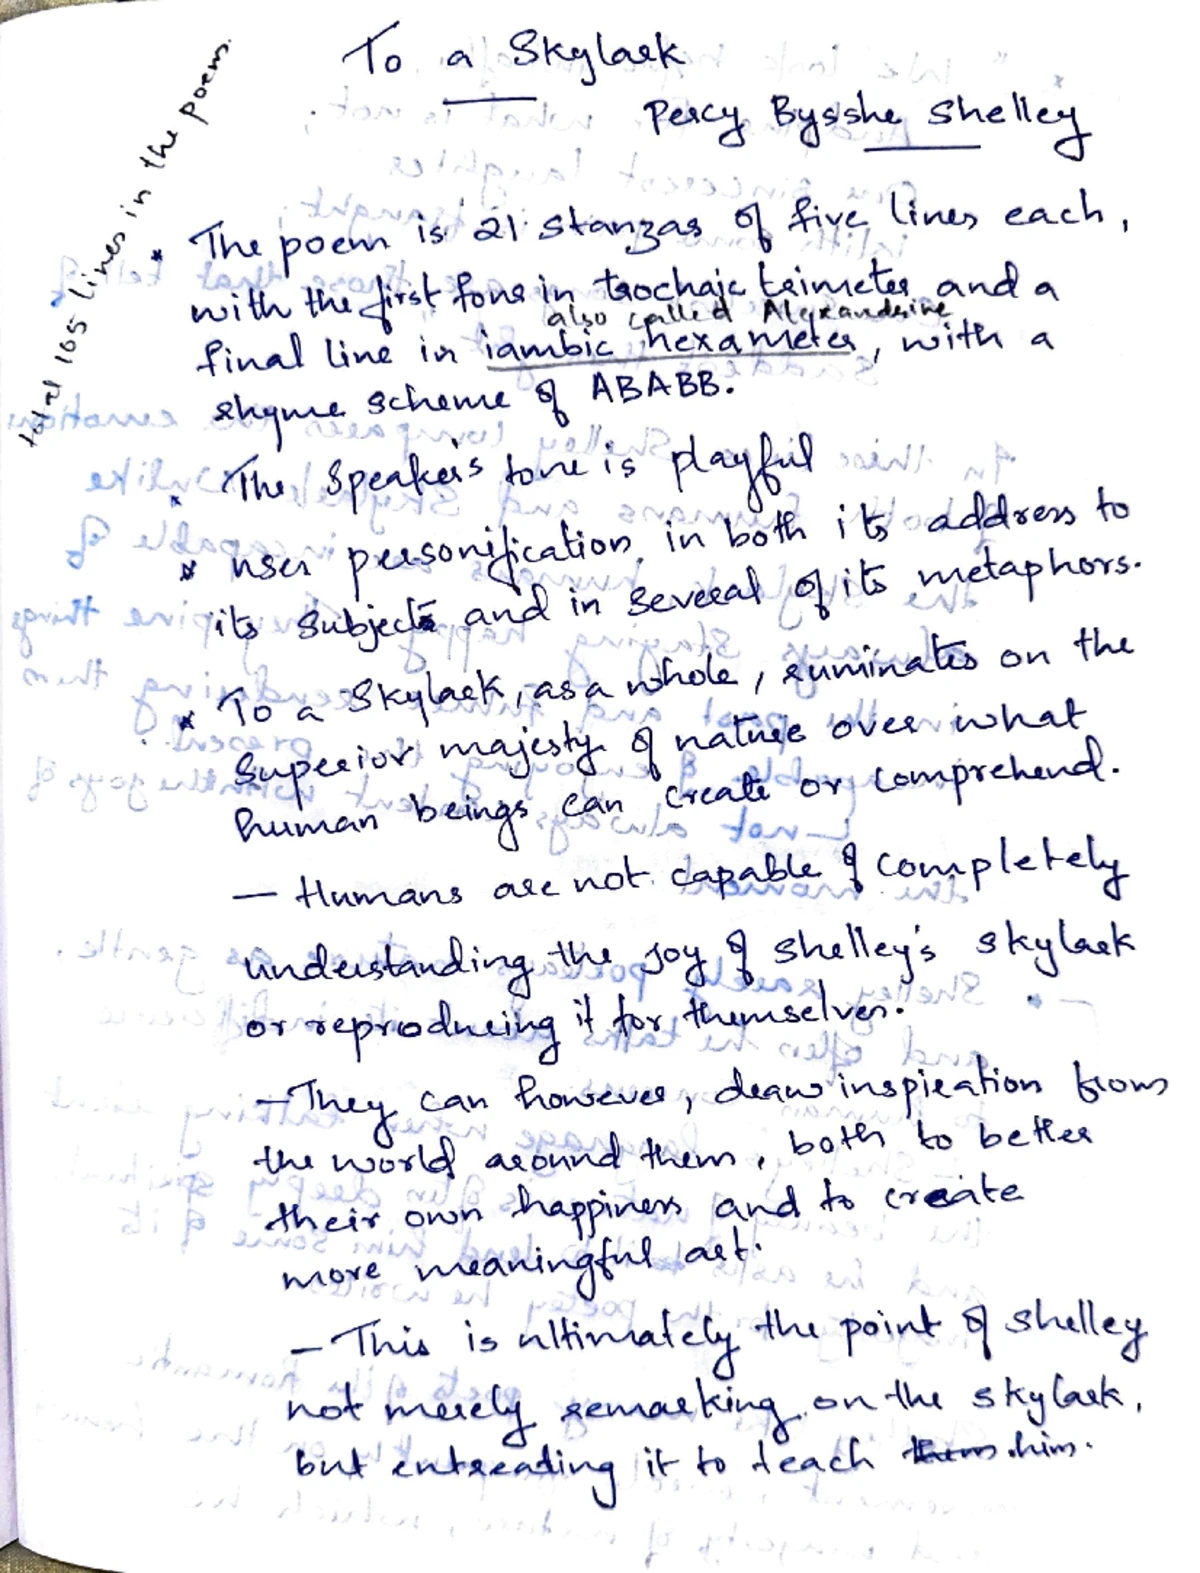 To a Skylark
Percy Bysshe Shelley
total 105 lines in the poem.
* The poem is 21 stanzas of five lines each,
with the first four in trochaic trimeter and a
also called Alexandrine
final line in iambic hexameter, with a
rhyme scheme of ABABB.
* The Speaker's tone is playful
* uses personification in both its address to
its subject and in several of its metaphors.
* To a Skylark, as a whole, ruminates on the
Superior majesty of nature over what
human beings can create or comprehend.
— Humans are not capable of completely
understanding the joy of Shelley's skylark
or reproducing it for themselves.
— They can however, draw inspiration from
the world around them, both to better
their own happiness and to create
more meaningful art.
— This is ultimately the point of Shelley
not merely remarking on the skylark,
but entreading it to teach them him.